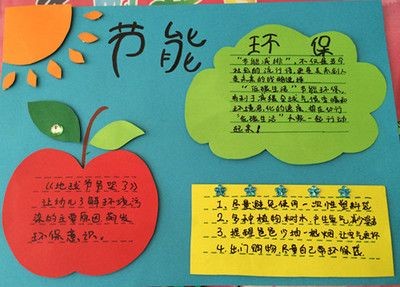 节能
环保
"节能减排",不仅是当今
社会的流行语,更是关系到人
类未来的战略选择
"低碳生活"节能环保,
有利于减缓全球气候变暖和
环境恶化的速度,势在必行
"低碳生活"大家一起行动
起来!
《地球爷爷哭了》
让幼儿了解环境污
染的主要原因,萌发
环保意识。
1、尽量避免使用一次性塑料袋
2、多种植物树木,产生氧气,利
3、提醒爸爸少动一起烟,让空气更怀
4、出门购物,尽量自己带环保袋